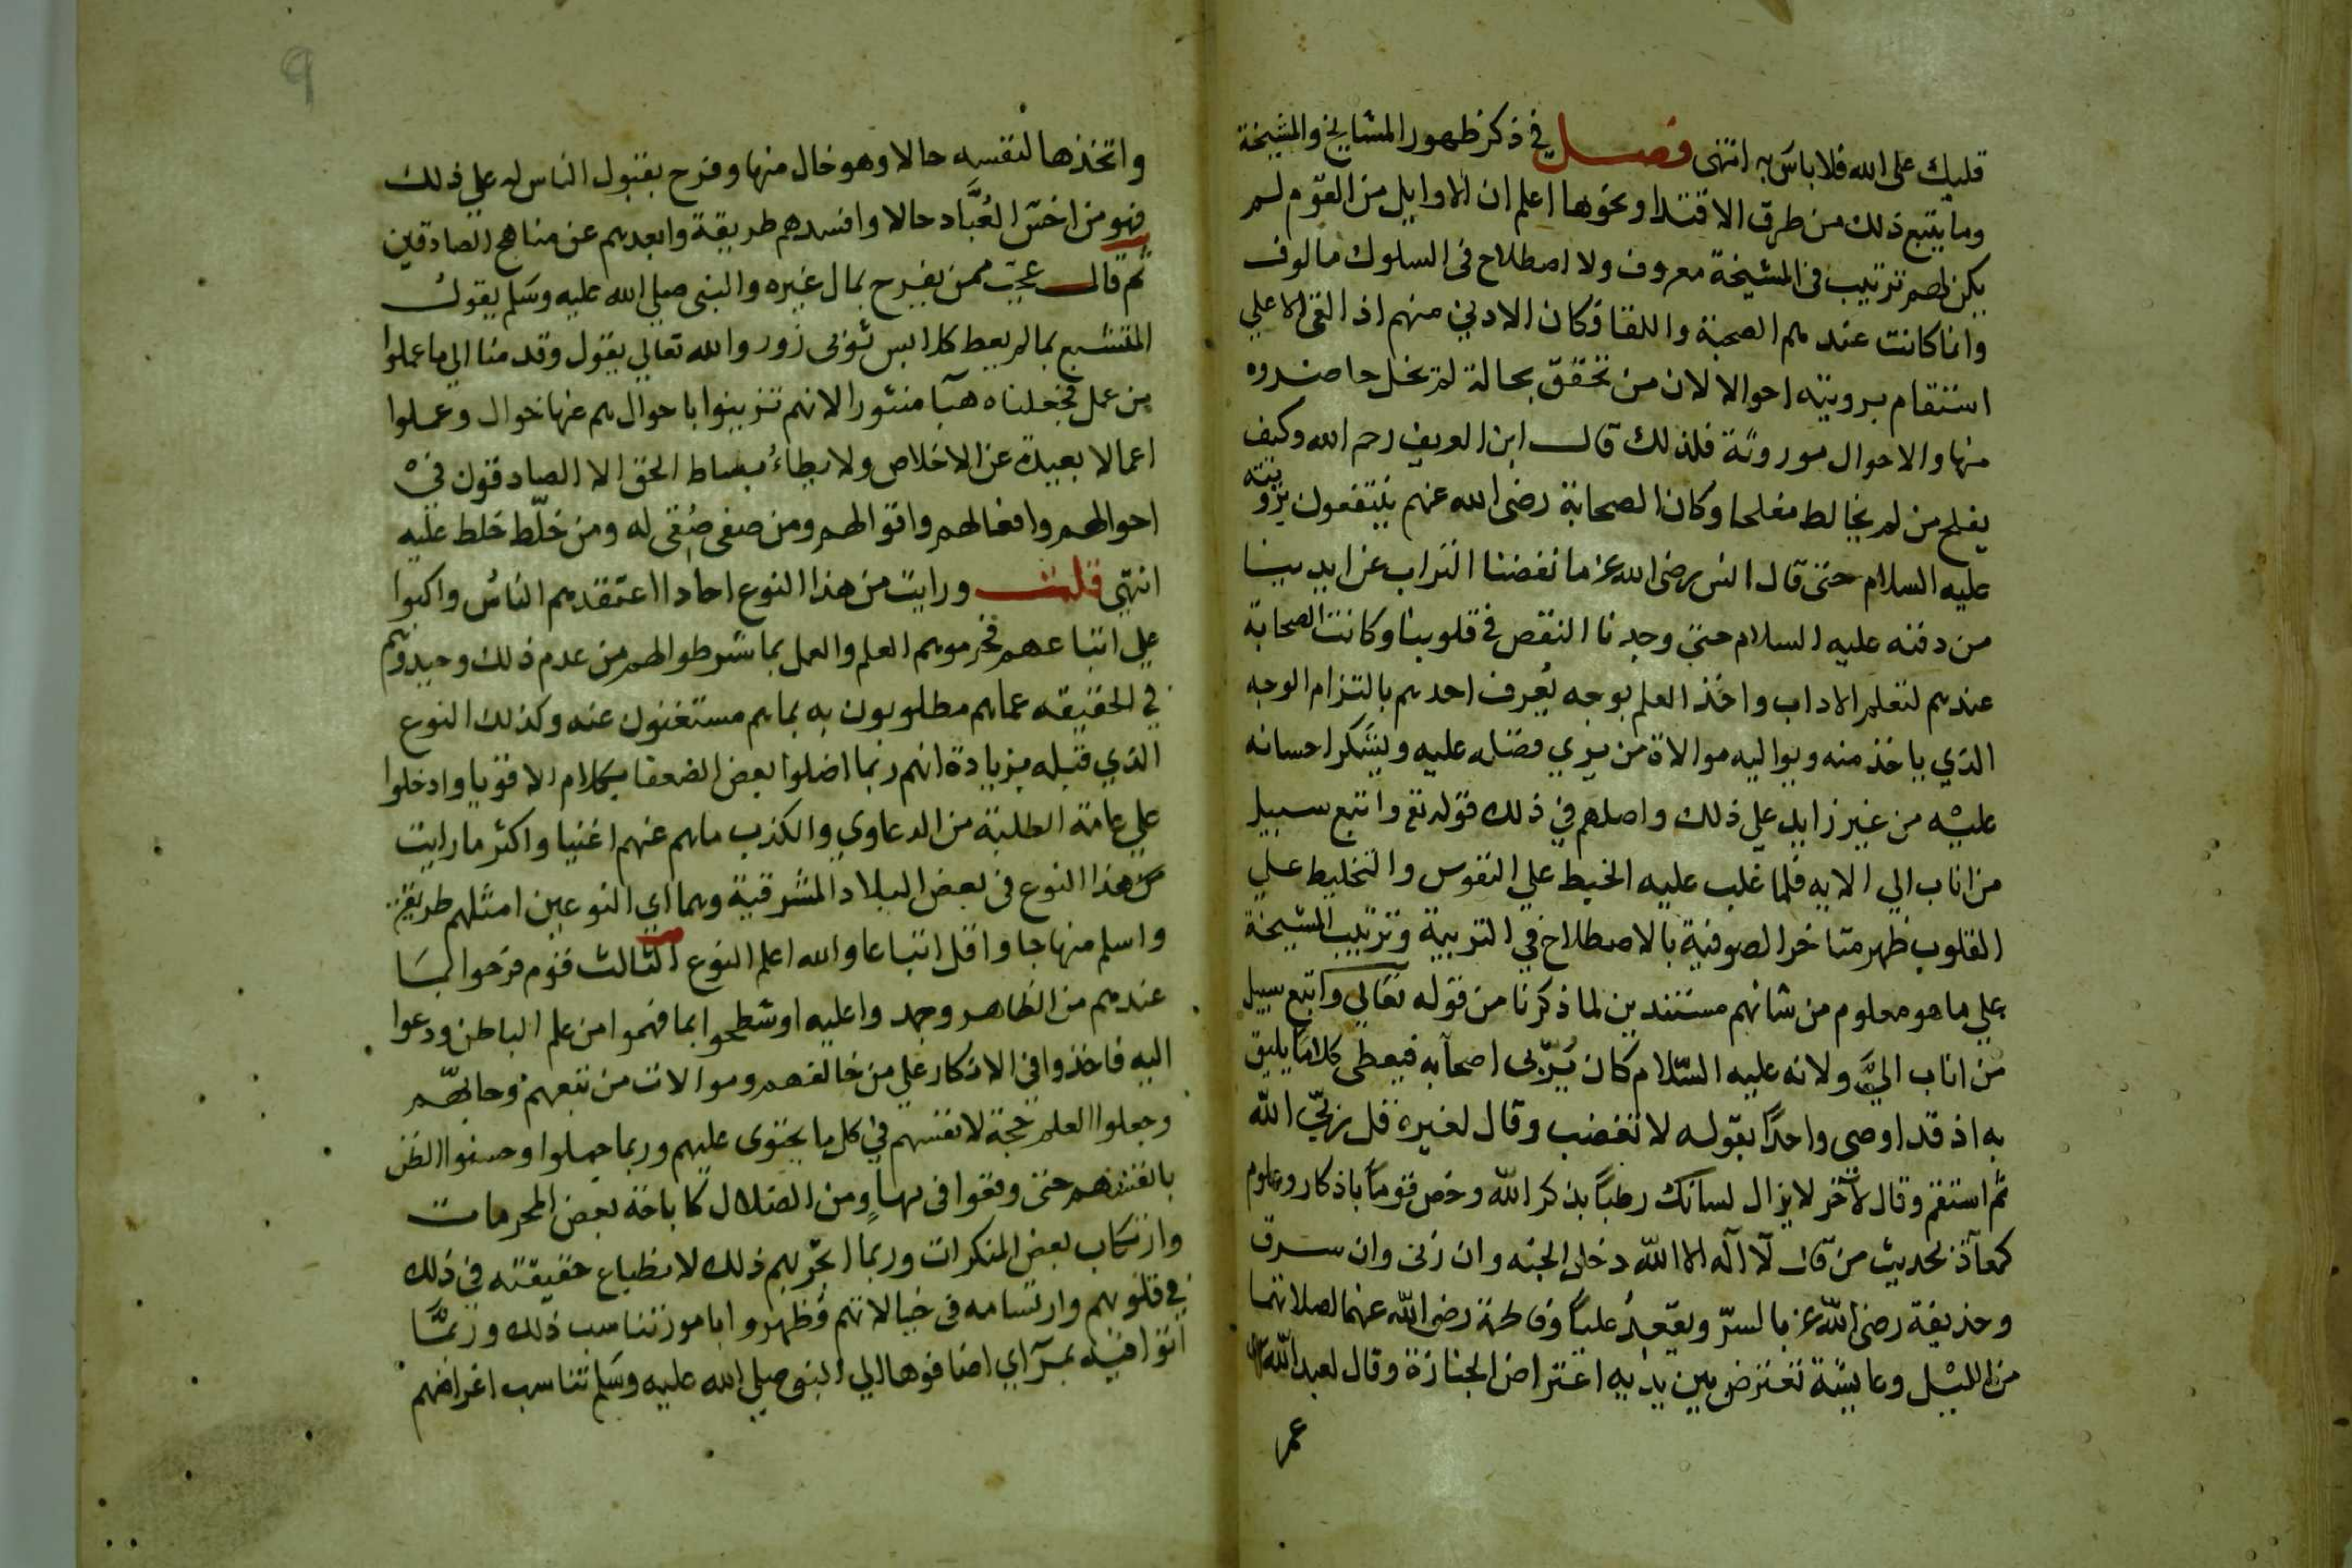 قلبك على الله فلا باس به انتهى فصل في ذكر ظهور المشايخ والمشيخة
وما يتبع ذلك من طرق الاقتدا ونحوها اعلم ان الاوايل من القوم لم
يكن لهم ترتيب في المشيخة معروف ولا اصطلاح في السلوك مالوف
وانما كانت عندهم الصحبة واللقا فكان الادني منهم اذا لقي الاعلي
استقام برويته احوالا لان من تحقق بحالة لم تخل حاضروه
منها والاحوال موروثة فلذلك قال ابن العريف رحم الله وكيف
يفلح من لم يخالط مفلحا وكان الصحابة رضى الله عنهم ينتفعون برويته
عليه السلام حتى قال انس رضى الله عنه ما نفضنا التراب عن ايدينا
من دفنه عليه السلام حتى وجدنا النقص في قلوبنا وكانت الصحابة
عندهم لتعلم الاداب واخذ العلم بوجه يُعرف احدهم بالتزام الوجه
الذي ياخذ منه ويواليه موالاة من يري فضله عليه ويشكر احسانه
عليه من غير زايد علي ذلك واصلهم في ذلك قوله تع واتبع سبيل
من اناب الي الايه فلما غلب عليه الخيط علي النفوس والتخليط علي
القلوب ظهر متاخر الصوفية بالاصطلاح في التربية وترتيب المشيخة
علي ما هو معلوم من شانهم مستندين لما ذكرنا من قوله تعالي واتبع سبيل
من اناب اليَّ ولانه عليه السّلام كان يُرّبى اصحابه فيعطى كلاما يليق
به اذ قد اوصى واحدًا بقوله لا تغضب وقال لغيره قل ربيّ الله
ثم استقم وقال لآخر لا يزال لسانك رطبًا بذكر الله وخص قومًا باذكار وعلوم
كمعاذ بحديث من قال لآ اله الا الله دخل الجنه وان زنى وان سرق
وحذيفة رضى الله عنه بالسرّ وبقعِدُ عليًا وفاطمة رضى الله عنهما لصلاتهما
من الليل وعايشة تعترض بين يديه اعتراض الجنازة وقال لعبد الله ابن
عمر
واتخذها لنفسه حالا وهو خال منها وفرح بقبول الناس له علي ذلك
فهو من اخسّ العُبَّاد حالا وافسدهم طريقة وابعدهم عن مناهج الصادقين
ثم قال عجبت ممن يفرح بمال غيره والنبى صلي الله عليه وسلم يقول
المتشبع بما لم يعط كلابس ثوبى زور والله تعالي يقول وقدمنا الي ما عملوا
من عمل فجعلناه هبآ منثورا لانهم تزينوا باحوال هم عنها خوال وعملوا
اعمالا بعيدة عن الاخلاص ولا يطاءُ بساط الحق الا الصادقون في
احوالهم وافعالهم واقوالهم ومن صفى صُفى له ومن خلّط خلط عليه
انتهى قلت ورايت من هذا النوع احادا اعتقدهم الناسُ واكبوا
علي اتباعهم فحرموهم العلم والعمل بما شرطوا لهم من عدم ذلك وحيدوهم
في الحقيقه عماهم مطلوبون به بما هم مستغنون عنه وكذلك النوع
الذي قبله بزيادة انهم ربما اضلوا بعض الضعفا بكلام الاقويا وادخلوا
علي عامة الطلبة من الدعاوي والكذب ماهم عنهم اغنيا واكثر ما رايت
من هذا النوع في بعض البلاد المشرقية وهما اي النوعين امثلهم طريقة
واسلم منهاجا واقل اتباعا والله اعلم النوع الثالث قوم فرحوا بما
عندهم من الظاهر وجمدوا عليه او شطحوا بما فهموا من علم الباطن ودعوا
اليه فاخذوا في الانكار علي من خالفهم وموالات من تبعهم وحابهم
وجعلوا العلم حجة لانفسهم في كل ما يحتوى عليهم وربما جهلوا وحسنوا الظن
بانفسهم حتى وقعوا في مهاوٍ من الضلال كاباحة بعض المحرمات
وارتكاب بعض المنكرات وربما انجر بهم ذلك لانطباع حقيقته في ذلك
في قلوبهم وارتسامه في خيالاتهم فظهروا بامور تناسب ذلك وربمَّا
اتوا فيه بمرآي اضافوها الي النبى صلي الله عليه وسلم تناسب اغراضهم